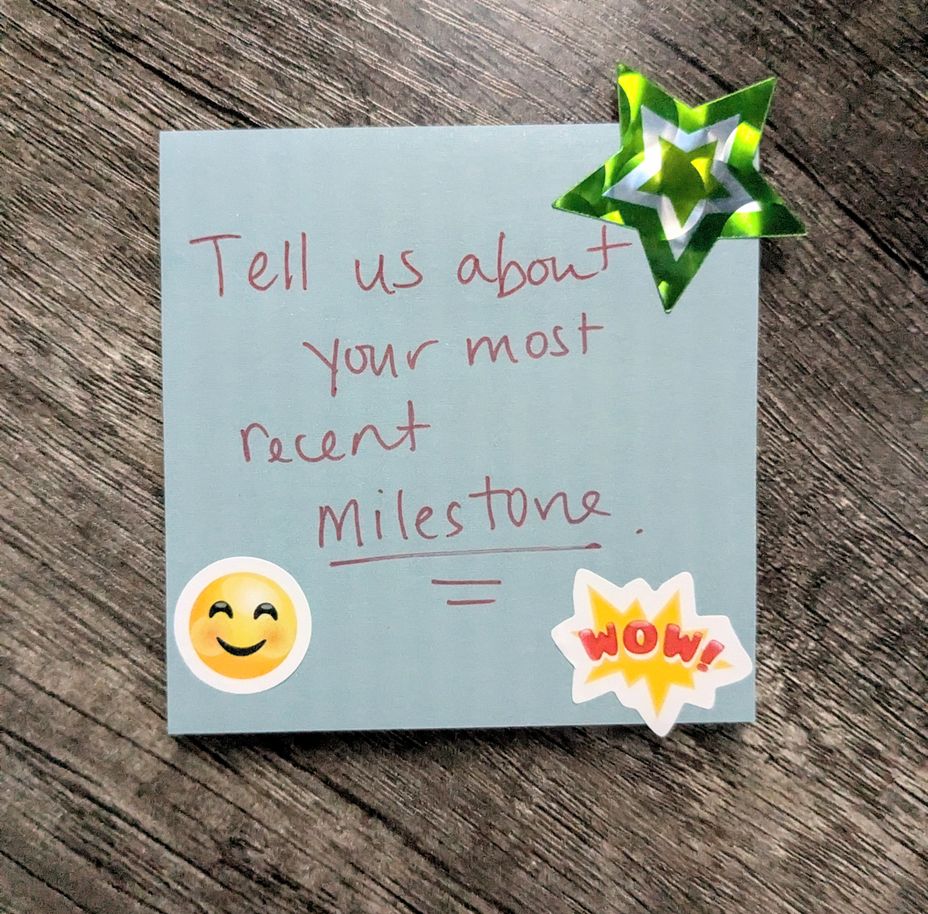 Tell us about
your most
recent
Milestone.
WOW!